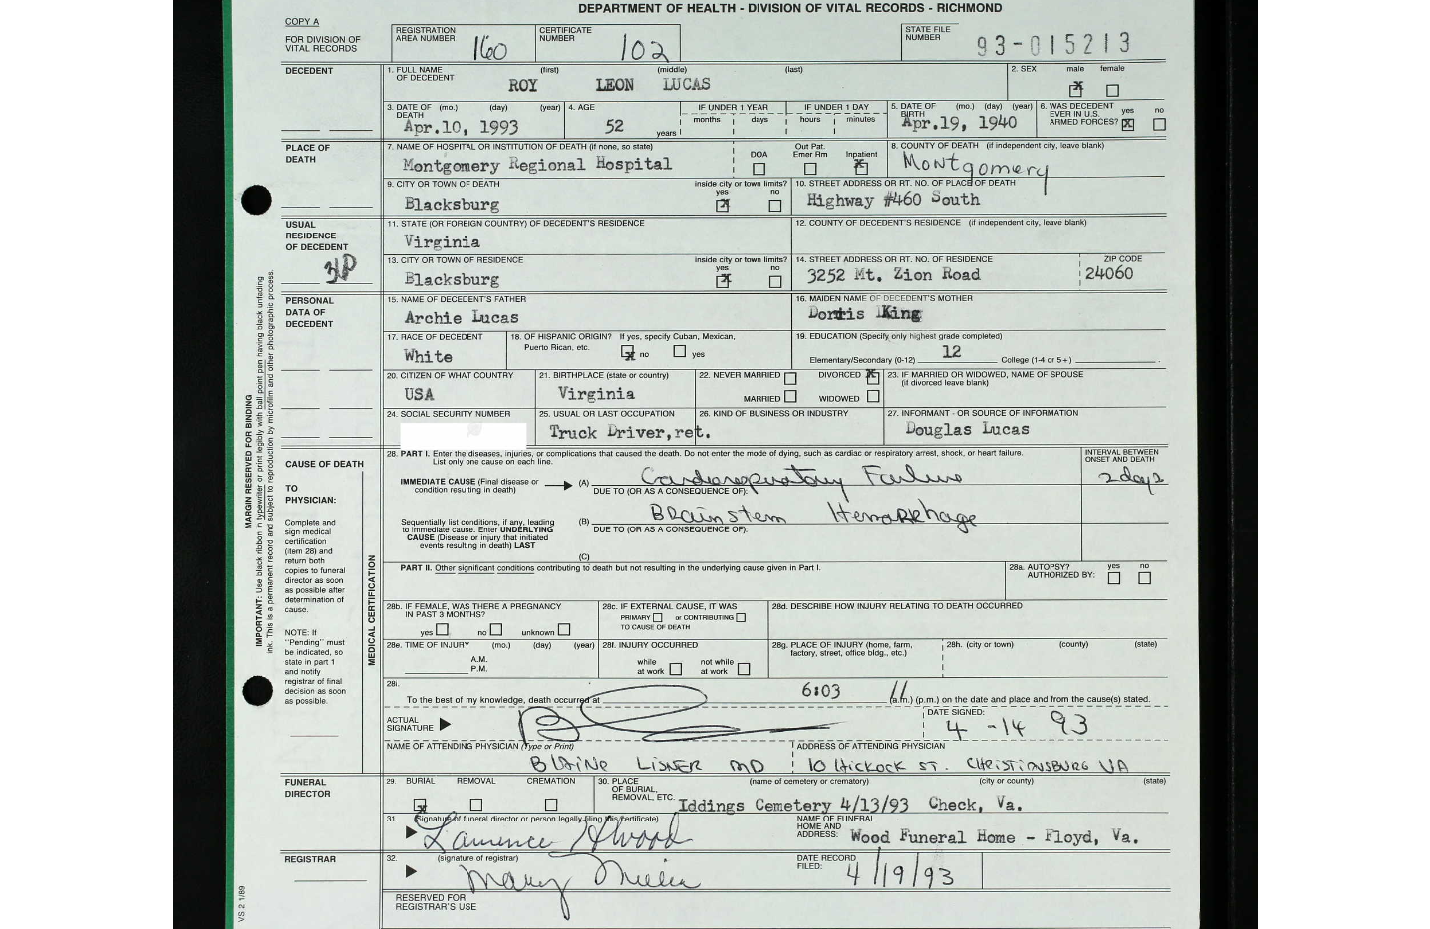 DEPARTMENT OF HEALTH - DIVISION OF VITAL RECORDS - RICHMOND
COPY A
FOR DIVISION OF VITAL RECORDS
REGISTRATION AREA NUMBER 160
CERTIFICATE NUMBER 102
STATE FILE NUMBER 93-015213
DECEDENT
1. FULL NAME OF DECEDENT (first) (middle) (last)
ROY LEON LUCAS
2. SEX male female
3. DATE OF DEATH (mo.) (day) (year) Apr.10, 1993
4. AGE 52 years
IF UNDER 1 YEAR months days
IF UNDER 1 DAY hours minutes
5. DATE OF BIRTH (mo.) (day) (year) Apr.19, 1940
6. WAS DECEDENT EVER IN U.S. ARMED FORCES? yes no
PLACE OF DEATH
7. NAME OF HOSPITAL OR INSTITUTION OF DEATH (if none, so state)
Montgomery Regional Hospital
DOA Out Pat. Emer Rm Inpatient
8. COUNTY OF DEATH (if independent city, leave blank)
Montgomery
9. CITY OR TOWN OF DEATH
Blacksburg
inside city or town limits? yes no
10. STREET ADDRESS OR RT. NO. OF PLACE OF DEATH
Highway #460 South
USUAL RESIDENCE OF DECEDENT
11. STATE (OR FOREIGN COUNTRY) OF DECEDENT'S RESIDENCE
Virginia
12. COUNTY OF DECEDENT'S RESIDENCE (if independent city, leave blank)
13. CITY OR TOWN OF RESIDENCE
Blacksburg
inside city or town limits? yes no
14. STREET ADDRESS OR RT. NO. OF RESIDENCE
3252 Mt. Zion Road
ZIP CODE
24060
PERSONAL DATA OF DECEDENT
15. NAME OF DECEDENT'S FATHER
Archie Lucas
16. MAIDEN NAME OF DECEDENT'S MOTHER
King
17. RACE OF DECEDENT
White
18. OF HISPANIC ORIGIN? If yes, specify Cuban, Mexican, Puerto Rican, etc. no yes
19. EDUCATION (Specify only highest grade completed)
Elementary/Secondary (0-12) 12 College (1-4 or 5+)
20. CITIZEN OF WHAT COUNTRY
USA
21. BIRTHPLACE (state or country)
Virginia
22. NEVER MARRIED DIVORCED
MARRIED WIDOWED
23. IF MARRIED OR WIDOWED, NAME OF SPOUSE (if divorced leave blank)
24. SOCIAL SECURITY NUMBER
25. USUAL OR LAST OCCUPATION
Truck Driver,ret.
26. KIND OF BUSINESS OR INDUSTRY
27. INFORMANT - OR SOURCE OF INFORMATION
Douglas Lucas
MARGIN RESERVED FOR BINDING
IMPORTANT: Use black ribbon in typewriter or print legibly with ball point pen having black unfading
ink. This is a permanent record and subject to reproduction by microfilm and other photographic process.
CAUSE OF DEATH
TO PHYSICIAN:
Complete and sign medical certification (item 28) and return both copies to funeral director as soon as possible after determination of cause.
NOTE: If "Pending" must be indicated, so state in part 1 and notify registrar of final decision as soon as possible.
MEDICAL CERTIFICATION
28. PART I. Enter the diseases, injuries, or complications that caused the death. Do not enter the mode of dying, such as cardiac or respiratory arrest, shock, or heart failure.
List only one cause on each line.
INTERVAL BETWEEN ONSET AND DEATH
IMMEDIATE CAUSE (Final disease or condition resulting in death) (A) Cardiorespiratory Failure 2 days
DUE TO (OR AS A CONSEQUENCE OF):
Sequentially list conditions, if any, leading to immediate cause. Enter UNDERLYING CAUSE (Disease or injury that initiated events resulting in death) LAST
(B) Brainstem Hemorrhage
DUE TO (OR AS A CONSEQUENCE OF):
(C)
PART II. Other significant conditions contributing to death but not resulting in the underlying cause given in Part I.
28a. AUTOPSY? AUTHORIZED BY: yes no
28b. IF FEMALE, WAS THERE A PREGNANCY IN PAST 3 MONTHS?
yes no unknown
28c. IF EXTERNAL CAUSE, IT WAS
PRIMARY or CONTRIBUTING
TO CAUSE OF DEATH
28d. DESCRIBE HOW INJURY RELATING TO DEATH OCCURRED
28e. TIME OF INJURY (mo.) (day) (year)
A.M.
P.M.
28f. INJURY OCCURRED
while at work not while at work
28g. PLACE OF INJURY (home, farm, factory, street, office bldg., etc.)
28h. (city or town) (county) (state)
28i.
To the best of my knowledge, death occurred at 6:03 (a.m.) (p.m.) on the date and place and from the cause(s) stated.
ACTUAL SIGNATURE
DATE SIGNED:
4-14 93
NAME OF ATTENDING PHYSICIAN (Type or Print)
BLAINE LISNER MD
ADDRESS OF ATTENDING PHYSICIAN
10 HICKOCK ST. CHRISTIANSBURG VA
FUNERAL DIRECTOR
29. BURIAL REMOVAL CREMATION
30. PLACE OF BURIAL, REMOVAL, ETC. (name of cemetery or crematory) (city or county) (state)
Iddings Cemetery 4/13/93 Check, Va.
31. (Signature of funeral director or person legally filing this certificate)
NAME OF FUNERAL HOME AND ADDRESS:
Wood Funeral Home - Floyd, Va.
REGISTRAR
32. (signature of registrar)
Mary
DATE RECORD FILED:
4/19/93
RESERVED FOR REGISTRAR'S USE
VS 2 1/89